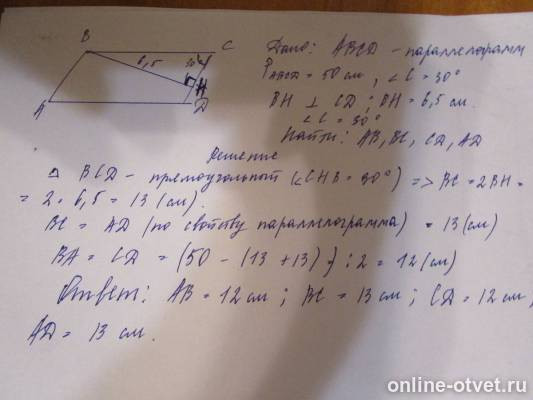 B
C
6,5
30°
H
A
D
Дано: ABCD - параллелограмм
P ABCD = 50 см, ∠C = 30°
BH ⊥ CD; BH = 6,5 см.
∠C = 30°
Найти: AB, BC, CD, AD
Решение
Δ BCD - прямоугольный (∠CHB = 90°) => BC = 2BH =
= 2 · 6,5 = 13 (см).
BC = AD (по свойству параллелограмма) = 13 (см)
BA = CD = (50 - (13 + 13)) : 2 = 12 (см)
Ответ: AB = 12 см; BC = 13 см; CD = 12 см,
AD = 13 см.
online-otvet.ru